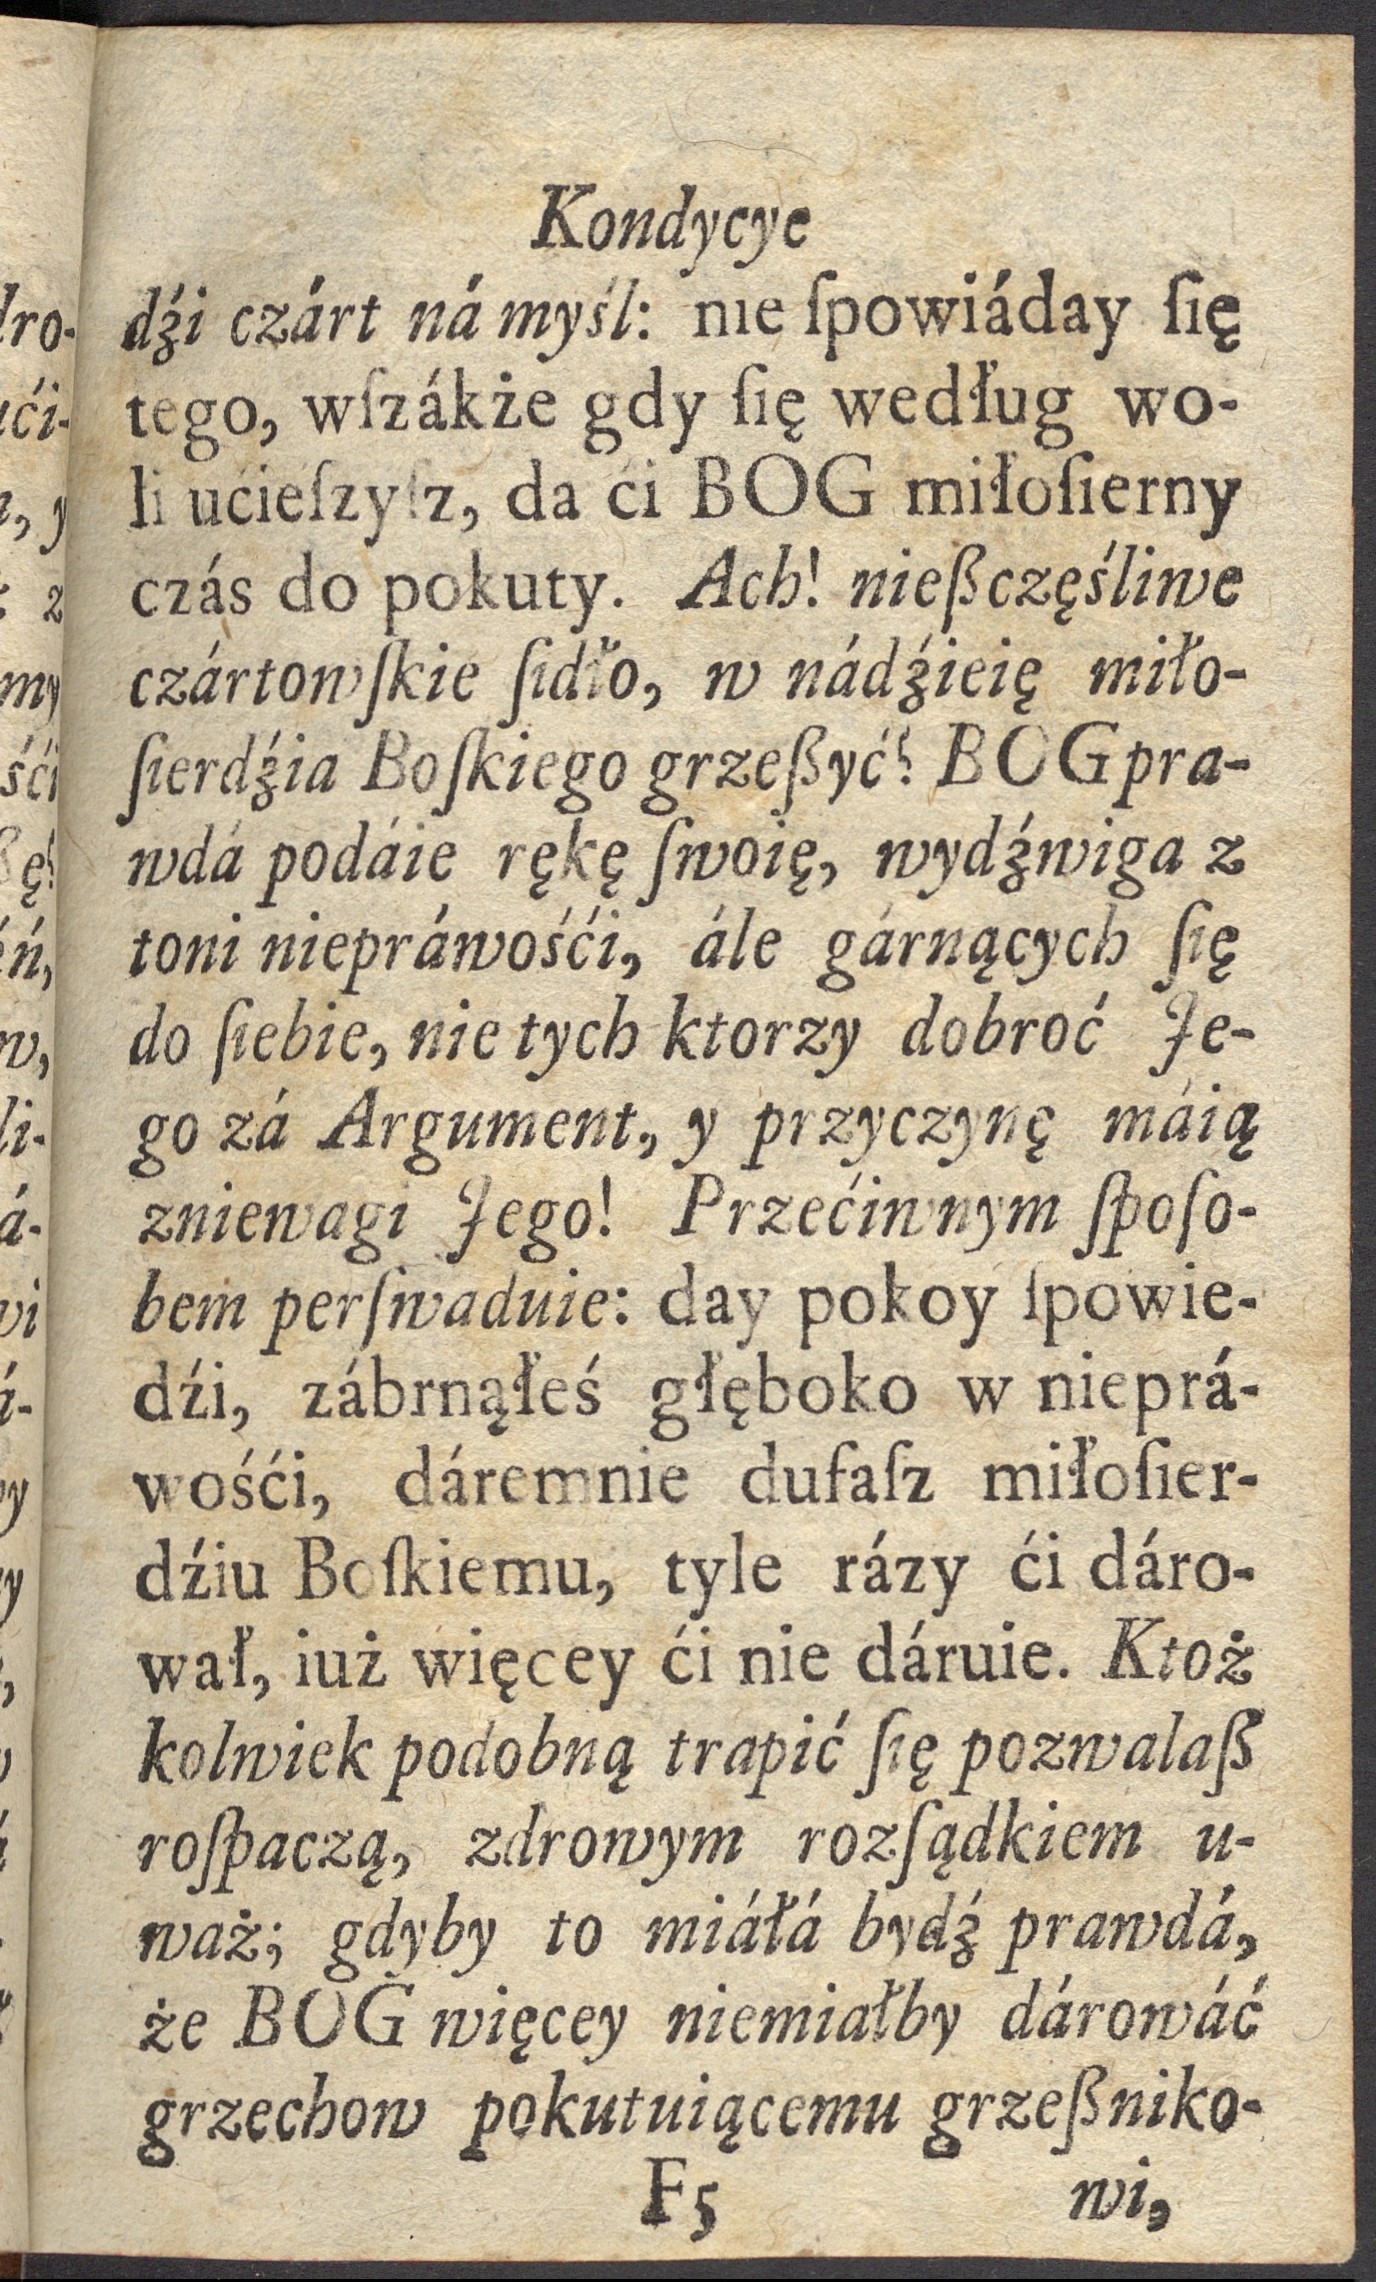 Kondycye
dźi czárt ná myśl: nie ſpowiáday ſię
tego, wſzákże gdy ſię według wo-
li ućieſzyſz, da ći BOG miłoſierny
czás do pokuty. Ach! nießczęśliwe
czártowſkie ſidło, w nádźieię miło-
ſierdźia Boſkiego grzeßyć? BOG pra-
wdá podáie rękę ſwoię, wydźwiga z
toni niepráwośći, ále gárnących ſię
do ſiebie, nie tych ktorzy dobroć Je-
go zá Argument, y przyczynę máią
zniewagi Jego! Przećiwnym ſpoſo-
bem perſwaduie: day pokoy ſpowie-
dźi, zábrnąłeś głęboko w nieprá-
wośći, dáremnie dufaſz miłoſier-
dźiu Boſkiemu, tyle rázy ći dáro-
wał, iuż więcey ći nie dáruie. Ktoż
kolwiek podobną trapić ſię pozwalaß
roſpaczą, zdrowym rozſądkiem u-
waż; gdyby to miáłá bydź prawdá,
że BOG więcey niemiałby dárowáć
grzechow pokutuiącemu grzeßniko-
F5 wi,